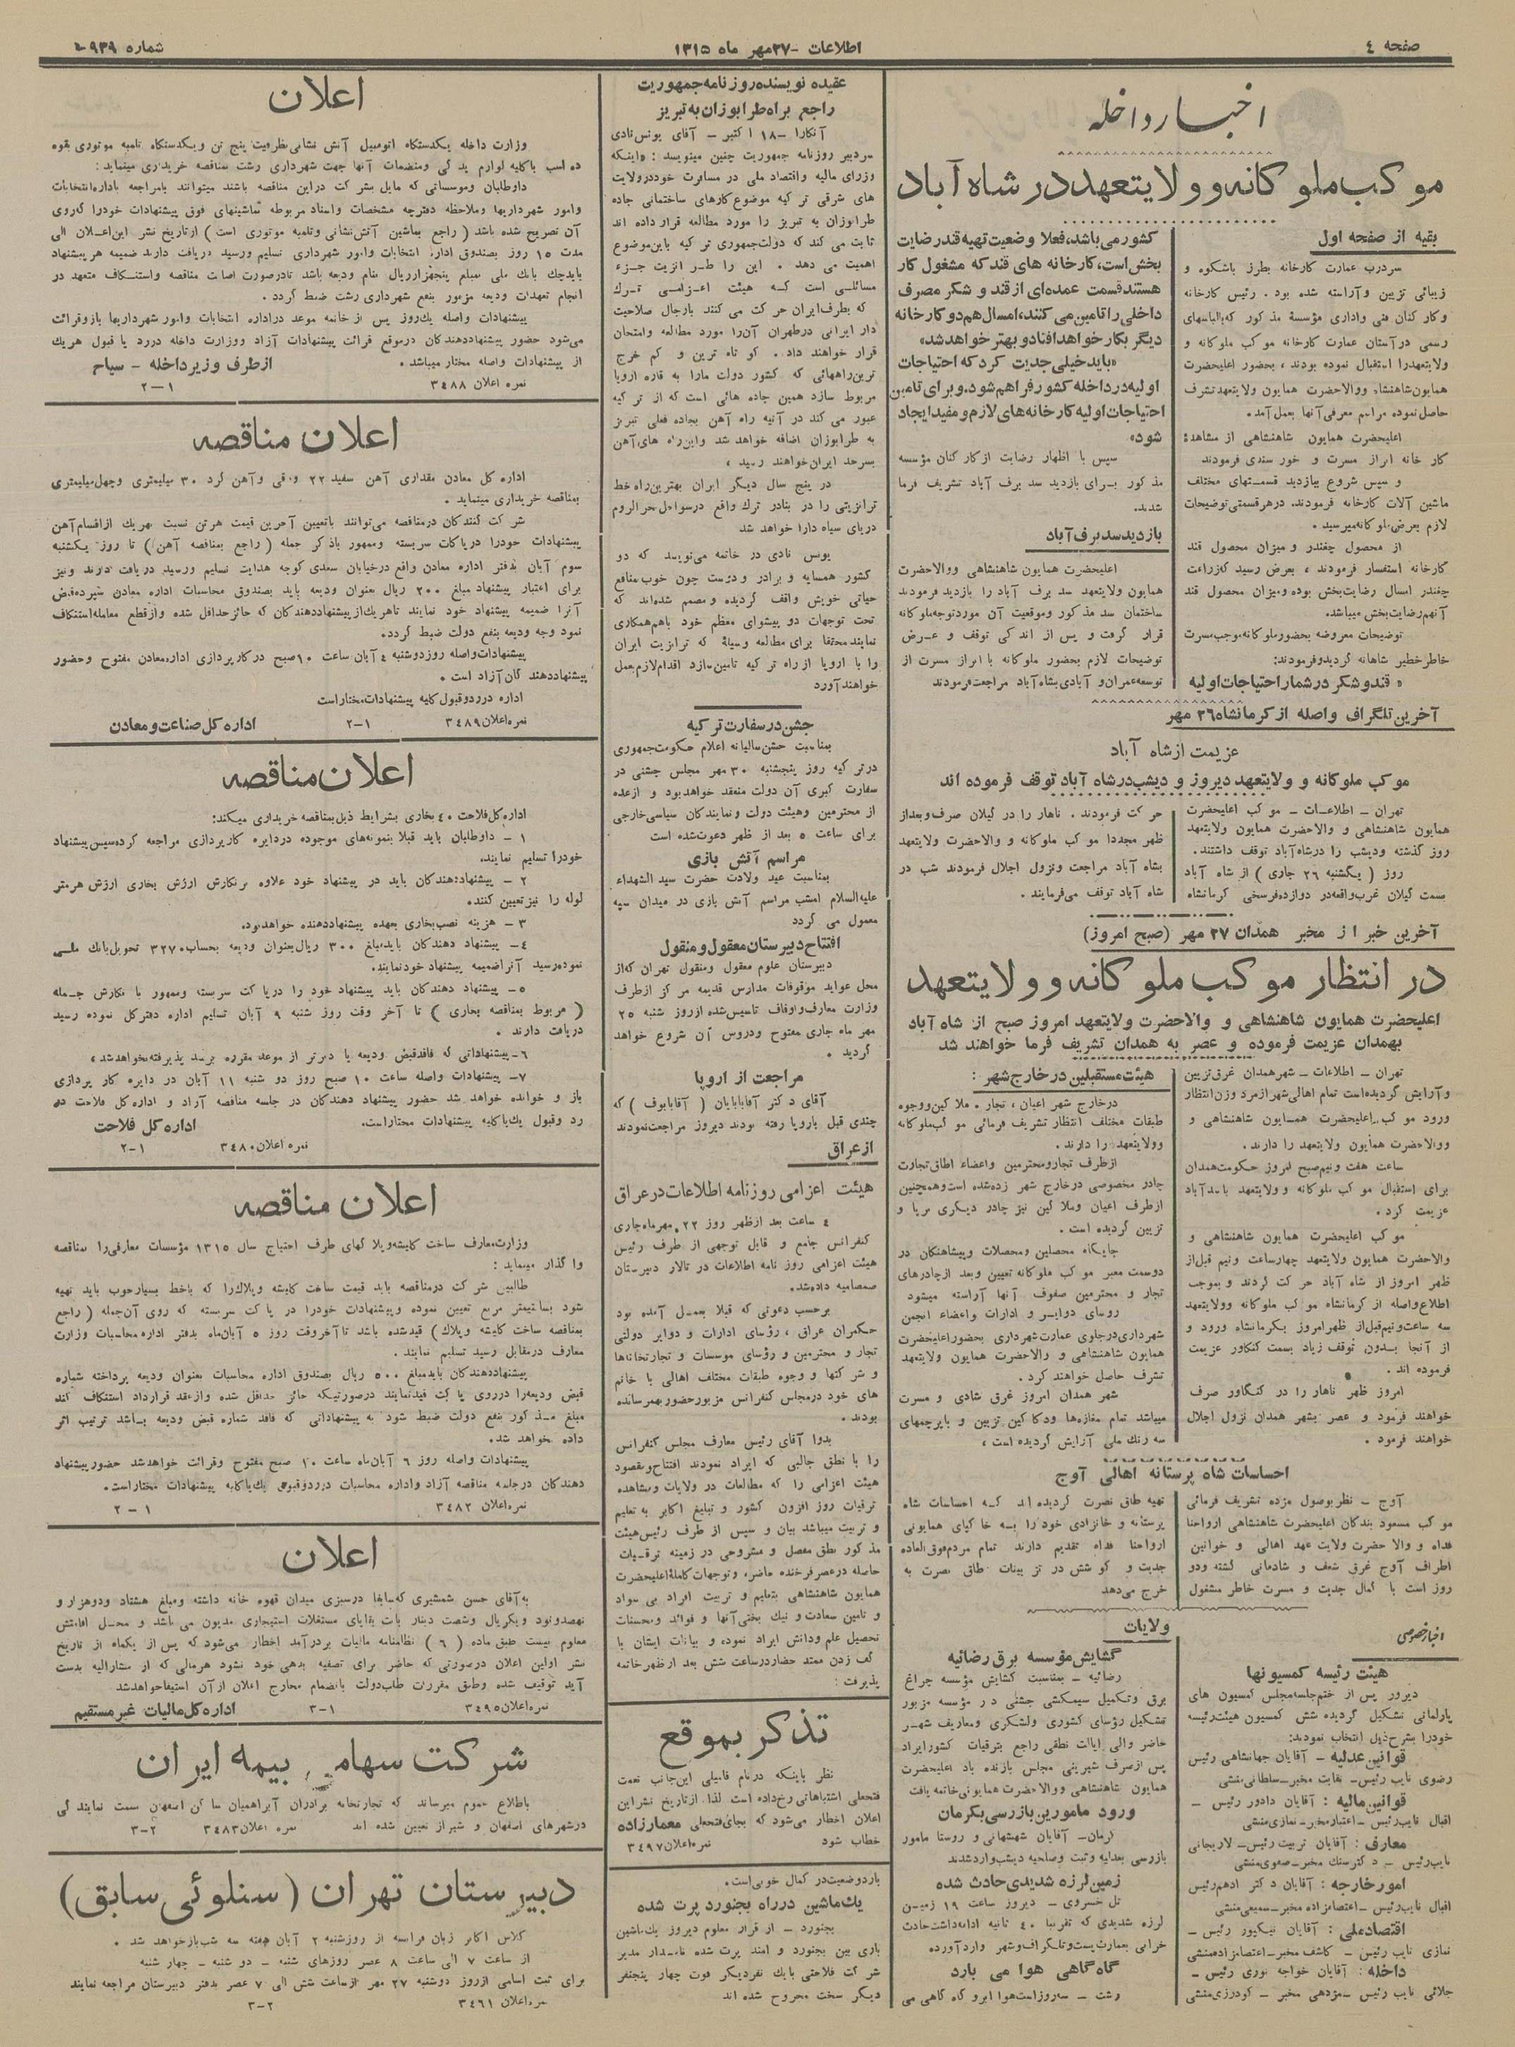 صفحه ٤
اطلاعات -۲۷ مهر ماه ۱۳۱۵
شماره ۲۹۳۹
اخبار داخله
موکب ملوکانه و ولایتعهد در شاه آباد
بقیه از صفحه اول
سردرب عمارت کارخانه بطرز باشکوه و
زیبائی تزیین و آراسته شده بود. رئیس کارخانه
و کارکنان فنی و اداری مؤسسهٔ مذکور که بالباسهای
رسمی در آستان عمارت کارخانه موکب ملوکانه و
ولایتعهد را استقبال نموده بودند، بحضور اعلیحضرت
همایون شاهنشاه و والاحضرت همایون ولایتعهد تشرف
حاصل نموده مراسم معرفی آنها بعمل آمد.
اعلیحضرت همایون شاهنشاهی از مشاهدهٔ
کارخانه ابراز مسرت و خورسندی فرمودند
و سپس شروع ببازدید قسمتهای مختلف
ماشین آلات کارخانه فرمودند. در هر قسمتی توضیحات
لازم بعرض ملوکانه میرسید.
از محصول چغندر و میزان محصول قند
کارخانه استفسار فرمودند، بعرض رسید که زراعت
چغندر امسال رضایت بخش بوده و میزان محصول قند
آنهم رضایت بخش میباشد.
توضیحات معروضه بحضور ملوکانه موجب مسرت
خاطر خطیر شاهانه گردید و فرمودند:
« قند و شکر در شمار احتیاجات اولیه
کشور می باشد، فعلا وضعیت تهیه قند رضایت
بخش است، کارخانه های قند که مشغول کار
هستند قسمت عمده‌ای از قند و شکر مصرف
داخلی را تامین می کنند، امسال هم دو کارخانه
دیگر بکار خواهد افتاد و بهتر خواهد شد»
«باید خیلی جدیت کرد که احتیاجات
اولیه در داخله کشور فراهم شود. و برای تامین
احتیاجات اولیه کارخانه های لازم و مفید ایجاد
شود»
سپس با اظهار رضایت از کارکنان مؤسسه
مذکور برای بازدید سد برف آباد تشریف فرما
شدند.
بازدید سد برف آباد
اعلیحضرت همایون شاهنشاهی و والاحضرت
همایون ولایتعهد سد برف آباد را بازدید فرمودند
ساختمان سد مذکور و موقعیت آن مورد توجه ملوکانه
قرار گرفت و پس از اندکی توقف و عرض
توضیحات لازم بحضور ملوکانه با ابراز مسرت از
توسعه عمران و آبادی بشاه آباد مراجعت فرمودند
آخرین تلگراف واصله از کرمانشاه ۲۶ مهر
عزیمت از شاه آباد
موکب ملوکانه و ولایتعهد دیروز و دیشب در شاه آباد توقف فرموده اند
تهران - اطلاعات - موکب اعلیحضرت
همایون شاهنشاهی و والاحضرت همایون ولایتعهد
روز گذشته و دیشب را در شاه آباد توقف داشتند.
روز ( یکشنبه ۲۶ جاری ) از شاه آباد
بسمت گیلان غرب واقعه در دوازده فرسخی کرمانشاه
حرکت فرمودند. ناهار را در گیلان صرف و بعد از
ظهر مجددا موکب ملوکانه و والاحضرت ولایتعهد
بشاه آباد مراجعت و نزول اجلال فرمودند شب در
شاه آباد توقف می فرمایند.
آخرین خبر از مخبر همدان ۲۷ مهر (صبح امروز)
در انتظار موکب ملوکانه و ولایتعهد
اعلیحضرت همایون شاهنشاهی و والاحضرت ولایتعهد امروز صبح از شاه آباد
بهمدان عزیمت فرموده و عصر به همدان تشریف فرما خواهند شد
تهران - اطلاعات - شهر همدان غرق تزیین
و آرایش گردیده است تمام اهالی شهر از مرد و زن انتظار
ورود موکب اعلیحضرت همایون شاهنشاهی و
والاحضرت همایون ولایتعهد را دارند.
ساعت هفت و نیم صبح امروز حکومت همدان
برای استقبال موکب ملوکانه و ولایتعهد باسدآباد
عزیمت کرد.
موکب اعلیحضرت همایون شاهنشاهی و
والاحضرت همایون ولایتعهد چهار ساعت و نیم قبل از
ظهر امروز از شاه آباد حرکت کردند و بموجب
اطلاع واصله از کرمانشاه موکب ملوکانه و ولایتعهد
سه ساعت و نیم قبل از ظهر امروز بکرمانشاه ورود و
از آنجا بدون توقف زیاد بسمت کنگاور عزیمت
فرموده اند.
امروز ظهر ناهار را در کنگاور صرف
خواهند فرمود و عصر بشهر همدان نزول اجلال
خواهند فرمود.
هیئت مستقبلین در خارج شهر:
در خارج شهر اعیان، تجار، ملاکین و وجوه
طبقات مختلف انتظار تشریف فرمائی موکب ملوکانه
و ولایتعهد را دارند.
از طرف تجار و محترمین و اعضاء اطاق تجارت
چادر مخصوصی در خارج شهر زده شده است و همچنین
از طرف اعیان و ملاکین نیز چادر دیگری برپا و
تزیین گردیده است.
جایگاه محصلین و محصلات و پیشاهنگان در
دو سمت معبر موکب ملوکانه تعیین و بعد از چادرهای
تجار و محترمین صفوف آنها آراسته میشود
روسای دوایر و ادارات و اعضاء انجمن
شهرداری در جلوی عمارت شهرداری بحضور اعلیحضرت
همایون شاهنشاهی و والاحضرت همایون ولایتعهد
تشرف حاصل خواهند کرد.
شهر همدان امروز غرق شادی و مسرت
میباشد تمام مغازه‌ها و دکاکین تزیین و با پرچمهای
سه رنگ ملی آرایش گردیده است،
احساسات شاه پرستانه اهالی آوج
آوج - نظر بوصول مژده تشریف فرمائی
موکب مسعود بندگان اعلیحضرت شاهنشاهی ارواحنا
فداه و والا حضرت ولایت عهد اهالی و خوانین
اطراف آوج غرق شعف و شادمانی گشته و دو
روز است با کمال جدیت و مسرت خاطر مشغول
تهیه طاق نصرت گردیده اند که احساسات شاه
پرستانه و خانزادی خود را به خاکپای همایونی
ارواحنا فداه تقدیم دارند تمام مردم فوق العاده
جدیت و کوشش در تزیینات طاق نصرت به
خرج می دهد
اخبار خصوصی
هیئت رئیسه کمسیونها
دیروز پس از ختم جلسه مجلس کمسیون های
پارلمانی تشکیل گردیده شش کمسیون هیئت رئیسه
خود را بشرح ذیل انتخاب نمودند:
قوانین عدلیه - آقایان جهانشاهی رئیس
رضوی نایب رئیس - نقابت مخبر - سلطانی منشی
قوانین مالیه: آقایان دادور رئیس -
اقبال نایب رئیس - اعتبار مخبر - نمازی منشی
معارف: آقایان تربیت رئیس - لاریجانی
نایب رئیس - دکتر سنگ مخبر - صفوی منشی
امور خارجه: آقایان دکتر ادهم رئیس
اقبال نایب رئیس - اعتصام زاده مخبر - سمیعی منشی
اقتصاد ملی: آقایان نیکپور رئیس -
نمازی نایب رئیس - کاشف مخبر - اعتصام زاده منشی
داخله: آقایان خواجه نوری رئیس -
جلائی نایب رئیس - مژدهی مخبر - گودرزی منشی
ولایات
گشایش مؤسسه برق رضائیه
رضائیه - بمناسبت گشایش مؤسسه چراغ
برق و تکمیل سیمکشی جشنی در مؤسسه مزبور
تشکیل رؤسای کشوری و لشکری و معاریف شهر
حاضر والی ایالت نطقی راجع بترقیات کشور ایراد
پس از صرف شیرینی مجلس بازنده باد اعلیحضرت
همایون شاهنشاهی و والاحضرت همایونی خاتمه یافت
ورود مامورین بازرسی بکرمان
کرمان - آقایان شهشهانی و روستا مامور
بازرسی بعدلیه و ثبت و صلحیه دیشب وارد شدند
زمین لرزه شدیدی حادث شده
تل خسروی - دیروز ساعت ۱۹ زمین
لرزه شدیدی که تقریبا ۴۰ ثانیه ادامه داشت حادث
خرابی بعمارت پست و تلگراف و شهر وارد آورده
گاه گاهی هوا می بارد
رشت - سه روز است هوا ابر و گاه گاهی می
عقیده نویسنده روزنامه جمهوریت
راجع براه طرابوزان به تبریز
آنکارا - ۱۸ اکتبر - آقای یونس نادی
سردبیر روزنامه جمهوریت چنین مینویسد: «اینکه
وزرای مالیه و اقتصاد ملی در مسافرت خود در ولایت
های شرقی ترکیه موضوع کارهای ساختمانی جاده
طرابوزان به تبریز را مورد مطالعه قرار داده اند
ثابت می کند که دولت جمهوری ترکیه باین موضوع
اهمیت می دهد. این راه ترانزیت جزء
مسائلی است که هیئت اعزامی ترک
که بطرف ایران حرکت می کنند بارجال صلاحیت
دار ایرانی در طهران آن را مورد مطالعه و امتحان
قرار خواهند داد. کوتاه ترین و کم خرج
ترین راههائی که کشور دولت مارا به قاره اروپا
مربوط سازد همین جاده هائی است که از ترکیه
عبور می کند در آتیه راه آهن بجاده فعلی تبریز
به طرابوزان اضافه خواهد شد و این راه های آهن
بسرحد ایران خواهند رسید،
در پنج سال دیگر ایران بهترین راه خط
ترانزیتی را در بنادر ترک واقع در سواحل بحرالروم
دریای سیاه دارا خواهد شد
یونس نادی در خاتمه می نویسد که دو
کشور همسایه و برادر و دوست چون خوب منافع
حیاتی خویش واقف گردیده و مصمم شده اند که
تحت توجهات دو پیشوای معظم خود باهم همکاری
نمایند محققا برای مطالعه وسیلهٔ که ترانزیت ایران
را با اروپا از راه ترکیه تامین سازد اقدام لازم بعمل
خواهند آورد
جشن در سفارت ترکیه
بمناسبت جشن سالیانه اعلام حکومت جمهوری
در ترکیه روز پنجشنبه ۳۰ مهر مجلس جشنی در
سفارت کبری آن دولت منعقد خواهد بود و از عده
از محترمین و هیئت دولت و نمایندگان سیاسی خارجی
برای ساعت ۵ بعد از ظهر دعوت شده است
مراسم آتش بازی
بمناسبت عید ولادت حضرت سید الشهداء
علیه السلام امشب مراسم آتش بازی در میدان سپه
معمول می گردد
افتتاح دبیرستان معقول و منقول
دبیرستان علوم معقول و منقول تهران که از
محل عواید موقوفات مدارس قدیمه مرکز از طرف
وزارت معارف و اوقاف تاسیس شده از روز شنبه ۲۵
مهر ماه جاری مفتوح و دروس آن شروع خواهد
گردید.
مراجعت از اروپا
آقای دکتر آقابابایان ( آقابابوف ) که
چندی قبل باروپا رفته بودند دیروز مراجعت نمودند
از عراق
هیئت اعزامی روزنامه اطلاعات در عراق
٤ ساعت بعد از ظهر روز ۲۲ مهر ماه جاری
کنفرانس جامع و قابل توجهی از طرف رئیس
هیئت اعزامی روزنامه اطلاعات در تالار دبیرستان
صمصامیه داده شد.
برحسب دعوتی که قبلا بعمل آمده بود
حکمران عراق، رؤسای ادارات و دوایر دولتی
تجار و محترمین و رؤسای موسسات و تجارتخانه‌ها
و شرکتها و وجوه طبقات مختلف اهالی با خانم
های خود در مجلس کنفرانس مزبور حضور بهمرسانده
بودند.
بدوا آقای رئیس معارف مجلس کنفرانس
را با نطق جالبی که ایراد نمودند افتتاح و مقصود
هیئت اعزامی را که مطالعات در ولایات و مشاهده
ترقیات روز افزون کشور و تبلیغ اکابر به تعلیم
و تربیت میباشد بیان و سپس از طرف رئیس هیئت
مذکور نطق مفصل و مشروحی در زمینه ترقیات
حاصله در عصر فرخنده حاضر، و توجهات کاملهٔ اعلیحضرت
همایون شاهنشاهی بتعلیم و تربیت افراد بی سواد
و تامین سعادت و نیک بختی آنها و فوائد و محسنات
تحصیل علم و دانش ایراد نموده و بیانات ایشان با
کف زدن ممتد حضار در ساعت شش بعد از ظهر خاتمه
پذیرفت:
تذکر بموقع
نظر باینکه در نام فامیلی این جانب نعمت
فتحعلی اشتباهاتی رخ داده است لذا از تاریخ نشر این
اعلان اخطار می شود که بجای فتحعلی معمارزاده
خطاب شود
نمره اعلان ۳۴۹۷
بارد وضعیت در کمال خوبی است.
یک ماشین در راه بجنورد پرت شده
بجنورد - از قرار معلوم دیروز یک ماشین
باری بین بجنورد و امند پرت شده نامدار مدیر
شرکت فلاحتی با یک نفر دیگر فوت چهار پنج نفر
دیگر سخت مجروح شده اند
اعلان
وزارت داخله یکدستگاه اتومبیل آتش نشانی بظرفیت پنج تن و یکدستگاه تلمبه موتوری بقوه
ده اسب با کلیه لوازم یدکی و متضمات آنها جهت شهرداری رشت بمناقصه خریداری مینماید:
داوطلبان و موسساتی که مایل بشرکت در این مناقصه باشند میتوانند بامراجعه باداره انتخابات
و امور شهرداریها و ملاحظه دفترچه مشخصات و اسناد مربوطه ماشینهای فوق پیشنهادات خود را که روی
آن تصریح شده باشد ( راجع بماشین آتش نشانی و تلمبه موتوری است ) از تاریخ نشر این اعلان الی
مدت ۱۵ روز بصندوق اداره انتخابات و امور شهرداری تسلیم و رسید دریافت دارند ضمیمه هر پیشنهاد
باید چک بانک ملی بمبلغ پنجهزار ریال بنام ودیعه باشد تا در صورت اصابت مناقصه و استنکاف متعهد در
انجام تعهدات ودیعه مزبور بنفع شهرداری رشت ضبط گردد.
پیشنهادات واصله یک روز پس از خاتمه موعد در اداره انتخابات و امور شهرداریها باز و قرائت
می شود حضور پیشنهاد دهندگان در موقع قرائت پیشنهادات آزاد و وزارت داخله در رد یا قبول هر یک
از پیشنهادات واصله مختار میباشد.
از طرف وزیر داخله - سیاح
نمره اعلان ۳۴۸۸
۲-۱
اعلان مناقصه
اداره کل معادن مقداری آهن سفید ۲۲ ورقی و آهن گرد ۳۰ میلیمتری و چهل میلیمتری
بمناقصه خریداری مینماید.
شرکت کنندگان در مناقصه می توانند باتعیین آخرین قیمت هر تن نسبت بهریک از اقسام آهن
پیشنهادات خود را در پاکات سربسته و ممهور باذکر جمله ( راجع بمناقصه آهن ) تا روز یکشنبه
سوم آبان بدفتر اداره معادن واقع در خیابان سعدی کوچه هدایت تسلیم و رسید دریافت دارند و نیز
برای اعتبار پیشنهاد مبلغ ۲۰۰ ریال بعنوان ودیعه باید بصندوق محاسبات اداره معادن سپرده قبض
آنرا ضمیمه پیشنهاد خود نمایند تا هر یک از پیشنهاد دهندگان که حائز حداقل شده و از قطع معامله استنکاف
نمود وجه ودیعه بنفع دولت ضبط گردد.
پیشنهادات واصله روز دوشنبه ٤ آبان ساعت ۱۰ صبح در کارپردازی اداره معادن مفتوح و حضور
پیشنهاد دهندگان آزاد است.
اداره در رد و قبول کلیه پیشنهادات مختار است
نمره اعلان ۳۴۸۹
۲-۱
اداره کل صناعت و معادن
اعلان مناقصه
اداره کل فلاحت ۴۰ بخاری بشرایط ذیل بمناقصه خریداری میکند:
۱ - داوطلبان باید قبلا بنمونه‌های موجوده در دایره کارپردازی مراجعه کرده سپس پیشنهاد
خود را تسلیم نمایند.
۲ - پیشنهاد دهندگان باید در پیشنهاد خود علاوه بر نگارش ارزش بخاری ارزش هر متر
لوله را نیز تعیین کنند.
۳ - هزینه نصب بخاری بعهده پیشنهاد دهنده خواهد بود.
٤ - پیشنهاد دهندگان باید مبلغ ۳۰۰ ریال بعنوان ودیعه بحساب ۳۲۷۰ تحویل بانک ملی
نموده رسید آنرا ضمیمه پیشنهاد خود نمایند.
٥ - پیشنهاد دهندگان باید پیشنهاد خود را در پاکت سربسته و ممهور با نگارش جمله
( مربوط بمناقصه بخاری ) تا آخر وقت روز شنبه ۹ آبان تسلیم اداره دفتر کل نموده رسید
دریافت دارند.
٦ - پیشنهاداتی که فاقد قبض ودیعه یا دیرتر از موعد مقرره برسد پذیرفته نخواهد شد،
۷ - پیشنهادات واصله ساعت ۱۰ صبح روز دوشنبه ۱۱ آبان در دایره کارپردازی
باز و خوانده خواهد شد حضور پیشنهاد دهندگان در جلسه مناقصه آزاد و اداره کل فلاحت در
رد و قبول یک یا کلیه پیشنهادات مختار است.
اداره کل فلاحت
نمره اعلان ۳۴۸۰
۲-۱
اعلان مناقصه
وزارت معارف ساخت کاشیه و پلاکهای طرف احتیاج سال ۱۳۱۵ مؤسسات معارفی را بمناقصه
واگذار مینماید:
طالبین شرکت در مناقصه باید قیمت ساخت کاشیه و پلاک را که باخط بسیار خوب باید تهیه
شود بسانتیمتر مربع تعیین نموده و پیشنهادات خود را در پاکت سربسته که روی آن جمله ( راجع
بمناقصه ساخت کاشیه و پلاک ) قید شده باشد تا آخر وقت روز ۵ آبان ماه بدفتر اداره محاسبات وزارت
معارف در مقابل رسید تسلیم نمایند.
پیشنهاد دهندگان باید مبلغ ۵۰۰ ریال بصندوق اداره محاسبات بعنوان ودیعه پرداخته شماره
قبض ودیعه را در روی پاکت قید نمایند در صورتیکه حائز حداقل شده و از عقد قرارداد استنکاف کند
مبلغ مذکور بنفع دولت ضبط شود به پیشنهاداتی که فاقد شماره قبض ودیعه باشد ترتیب اثر
داده نخواهد شد.
پیشنهادات واصله روز ۶ آبان ماه ساعت ۱۰ صبح مفتوح و قرائت خواهد شد حضور پیشنهاد
دهندگان در جلسه مناقصه آزاد و اداره محاسبات در رد و قبول یک یا کلیه پیشنهادات مختار است.
نمره اعلان ۳۴۸۲
۲-۱
اعلان
به آقای حسن شمشیری که سابقا در سبزی میدان قهوه خانه داشته و مبلغ هشتاد و دو هزار و
نهصد و نود و یک ریال و شصت دینار بابت بقایای مستغلات استیجاری مدیون می باشد و محل اقامتش
معلوم نیست طبق ماده ( ۶ ) نظامنامه مالیات بر درآمد اخطار می شود که پس از یکماه از تاریخ
نشر اولین اعلان در صورتی که حاضر برای تصفیه بدهی خود نشود هر مالی که از مشارالیه بدست
آید توقیف شده و طبق مقررات طلب دولت بانضمام مخارج اعلان از آن استیفا خواهد شد
نمره اعلان ۳۴۹۵
۳-۱
اداره کل مالیات غیر مستقیم
شرکت سهامی بیمه ایران
باطلاع عموم میرساند که تجارتخانه برادران آبراهمیان ساکن اصفهان سمت نمایندگی
در شهرهای اصفهان و شیراز تعیین شده اند
نمره اعلان ۳۴۸۳
۳-۲
دبیرستان تهران (سنلوئی سابق)
کلاس اکابر زبان فرانسه از روز شنبه ۲ آبان هفته سه شب باز خواهد شد.
از ساعت ۷ الی ساعت ۸ عصر روزهای شنبه - دوشنبه - چهارشنبه
برای ثبت اسامی از روز دوشنبه ۲۷ مهر از ساعت شش الی ۷ عصر بدفتر دبیرستان مراجعه نمایند
نمره اعلان ۳۴۶۱
۳-۲